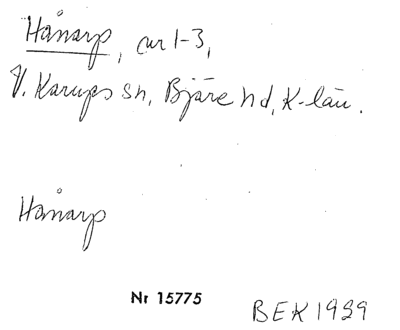 Hånarp, nr 1-3,
V. Karups sn, Bjäre hd, K-län.
Hånarp
Nr 15775
BEK 1929